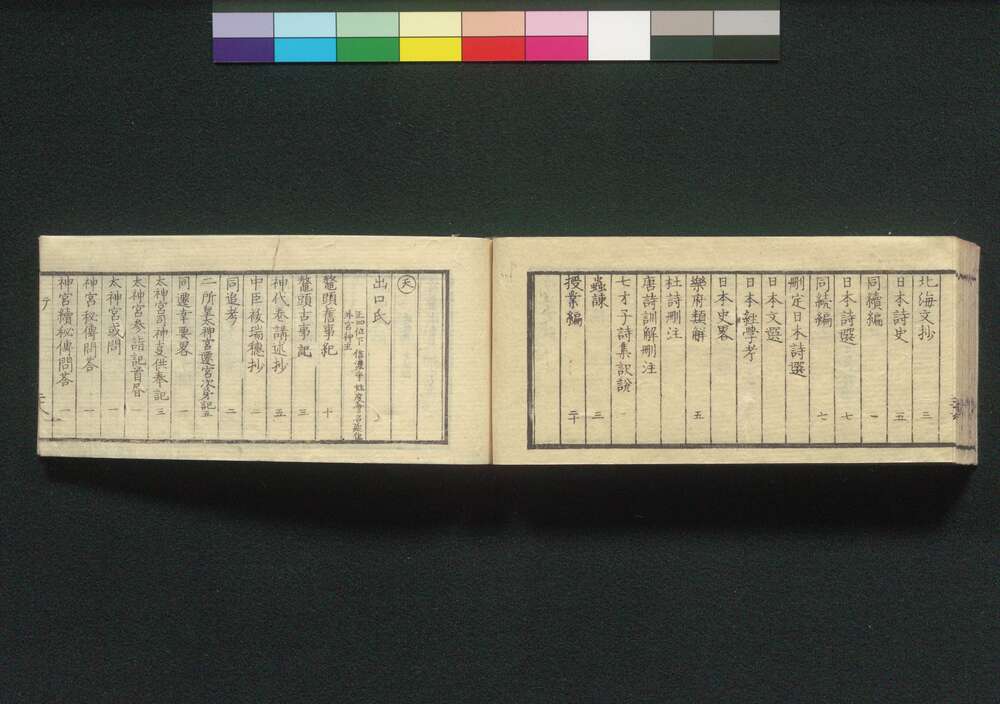 北海文抄 三
日本詩史 五
同續編 一
日本詩選 七
同続編 七
刪定日本詩選
日本文選
日本経學考
日本史畧
樂府類解 五
杜詩刪注
唐詩訓解刪注
七才子詩集訳説
蟲諫 三
授業編 十
天
出口氏
正四位下 信濃守 度會
外宮神主
鼇頭舊事紀 十
鼇頭古事記 三
神代巻講述抄 五
中臣祓瑞穗抄 二
同追考 二
二所皇太神宮遷宮次第記 五
同遷幸要畧 一
太神宮司神事供奉記 三
太神宮参詣記首 一
太神宮或問 一
神宮秘傳問答 一
神宮續秘傳問答 一
テ